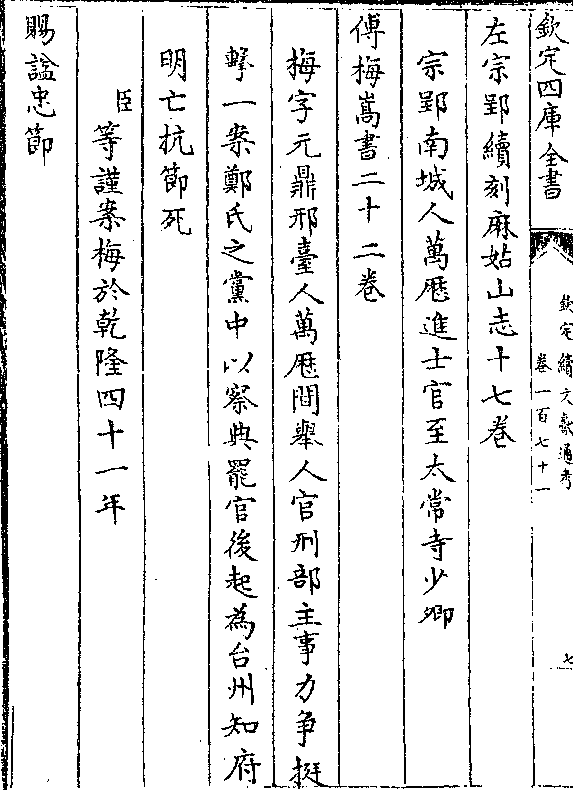 欽定四庫全書
欽定續文獻通考
卷一百七十一
七
左宗郢續刻麻姑山志十七卷
宗郢南城人萬厯進士官至太常寺少卿
傅梅嵩書二十二卷
梅字元鼎邢臺人萬厯間舉人官刑部主事力争挺
擊一案鄭氏之黨中以察典罷官後起為台州知府
明亡抗節死
臣等謹案梅於乾隆四十一年
賜諡忠節